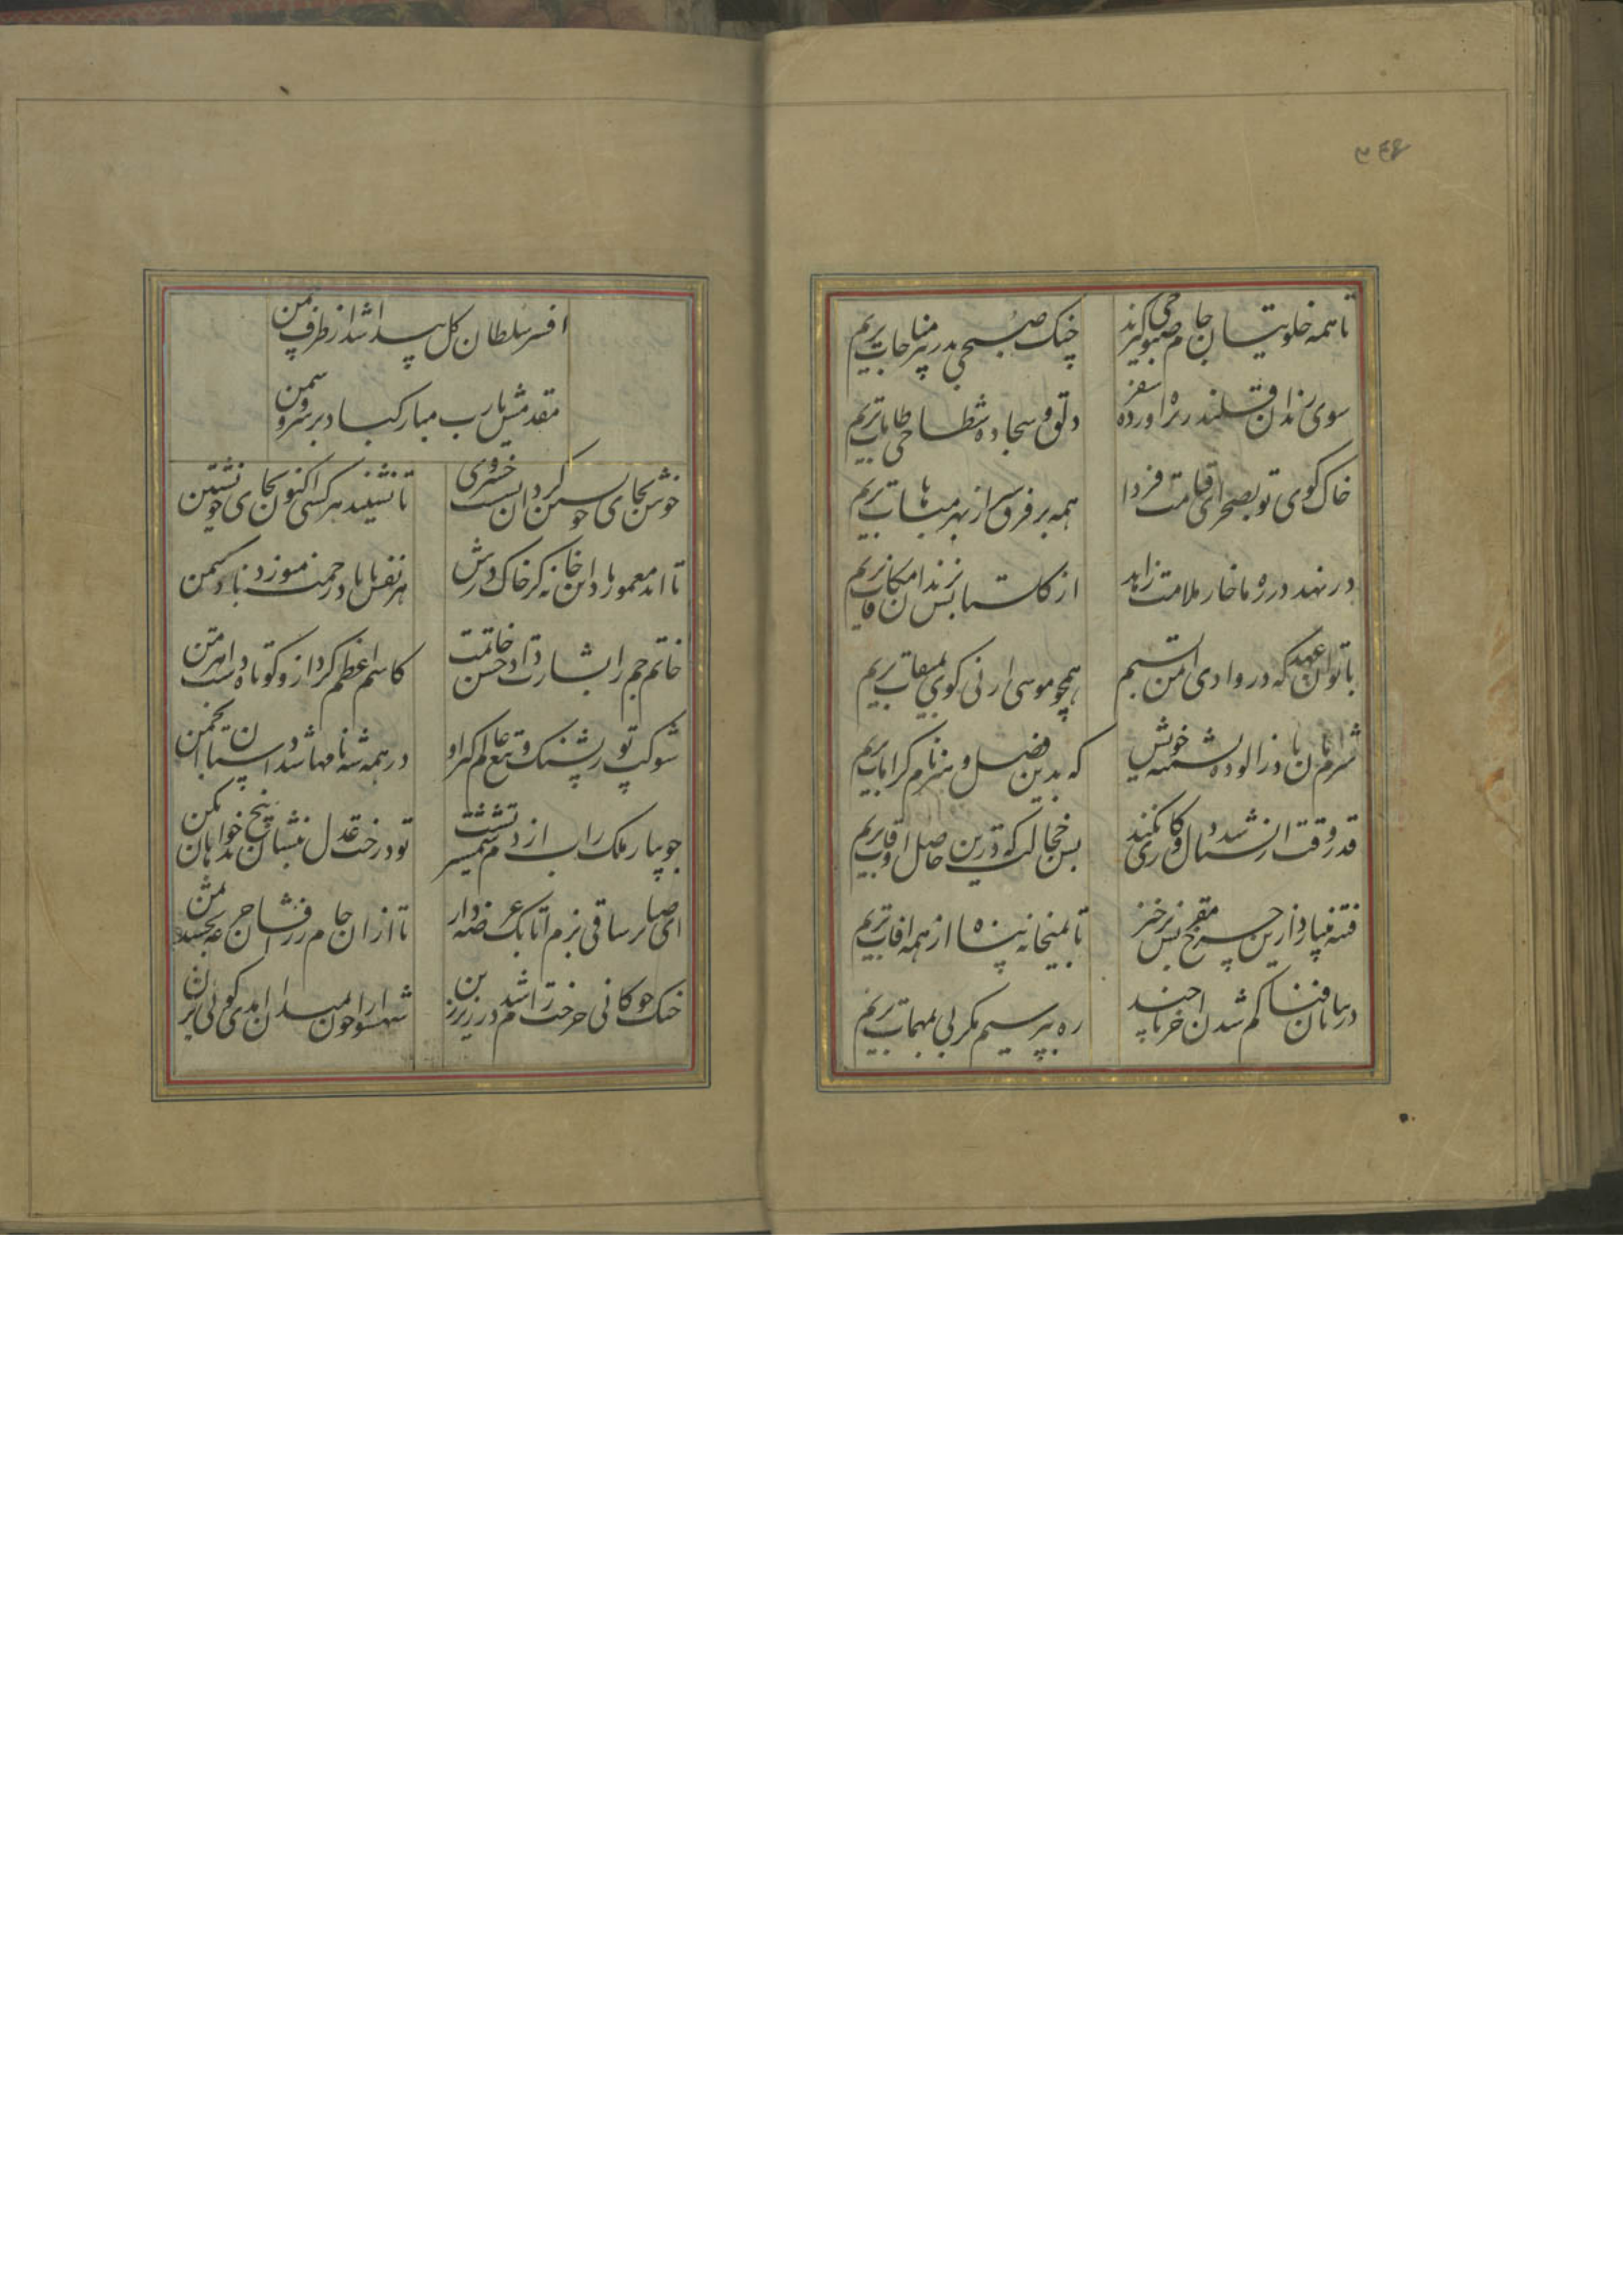 ۳۴۶
تا همه خلوتیان جام صبوحی گیرند
چنگ صبحی بدر پیر مناجات بریم
سوی رندان قلندر بره اورد سفر
دلق و سجاده شطاحی طامات بریم
خاک کوی تو بصحرای قیامت فردا
همه بر فرق سر از بهر مباهات بریم
ور نهد در ره ما خار ملامت زاهد
از گلستانش بزندان مکافات بریم
با تو ان عهد که در وادی ایمن بستیم
همچو موسی ارنی گوی بمیقات بریم
شرممان باد ز الوده پشمینه خویش
که بدین فضل و هنر نام کرامات بریم
قدر وقت ار نشناسد دل و کاری نکند
بس خجالت که درین حاصل اوقات بریم
فتنه میبارد ازین چرخ برخیز
تا بمیخانه پناه از همه افات بریم
در بیابان فنا گم شدن اخر تا چند
ره بپرسیم مگر پی بمهمات بریم
افسر سلطان گل پیدا شد از طرف چمن
مقدمش یارب مبارکباد بر سرو و سمن
خوش بجای خویشتن کردن نشست خسروی
تا نشیند هر کسی اکنون بجای خویشتن
تا ابد معمور باد این خانه کز خاک درش
هر نفس با باد رحمن میوزد باد یمن
خاتم جم را بشارت ده بحسن خاتمت
کاسم اعظم کرد ازو کوتاه دست اهرمن
شوکت پور پشنگ و تیغ عالم گیر او
در همه شهنامها شد داستان انجمن
جویبار ملک را اب از دم شمشیر تست
تو درخت عدل بنشان بیخ بدخواهان بکن
ای صبا بر ساقی بزم اتابک عرضه دار
تا ازان جام زرافشان جرعه بخشد بمن
خنگ چوگانی چرخت رام شد در زیر زین
شهسوارا چون بمیدان امدی گویی بزن